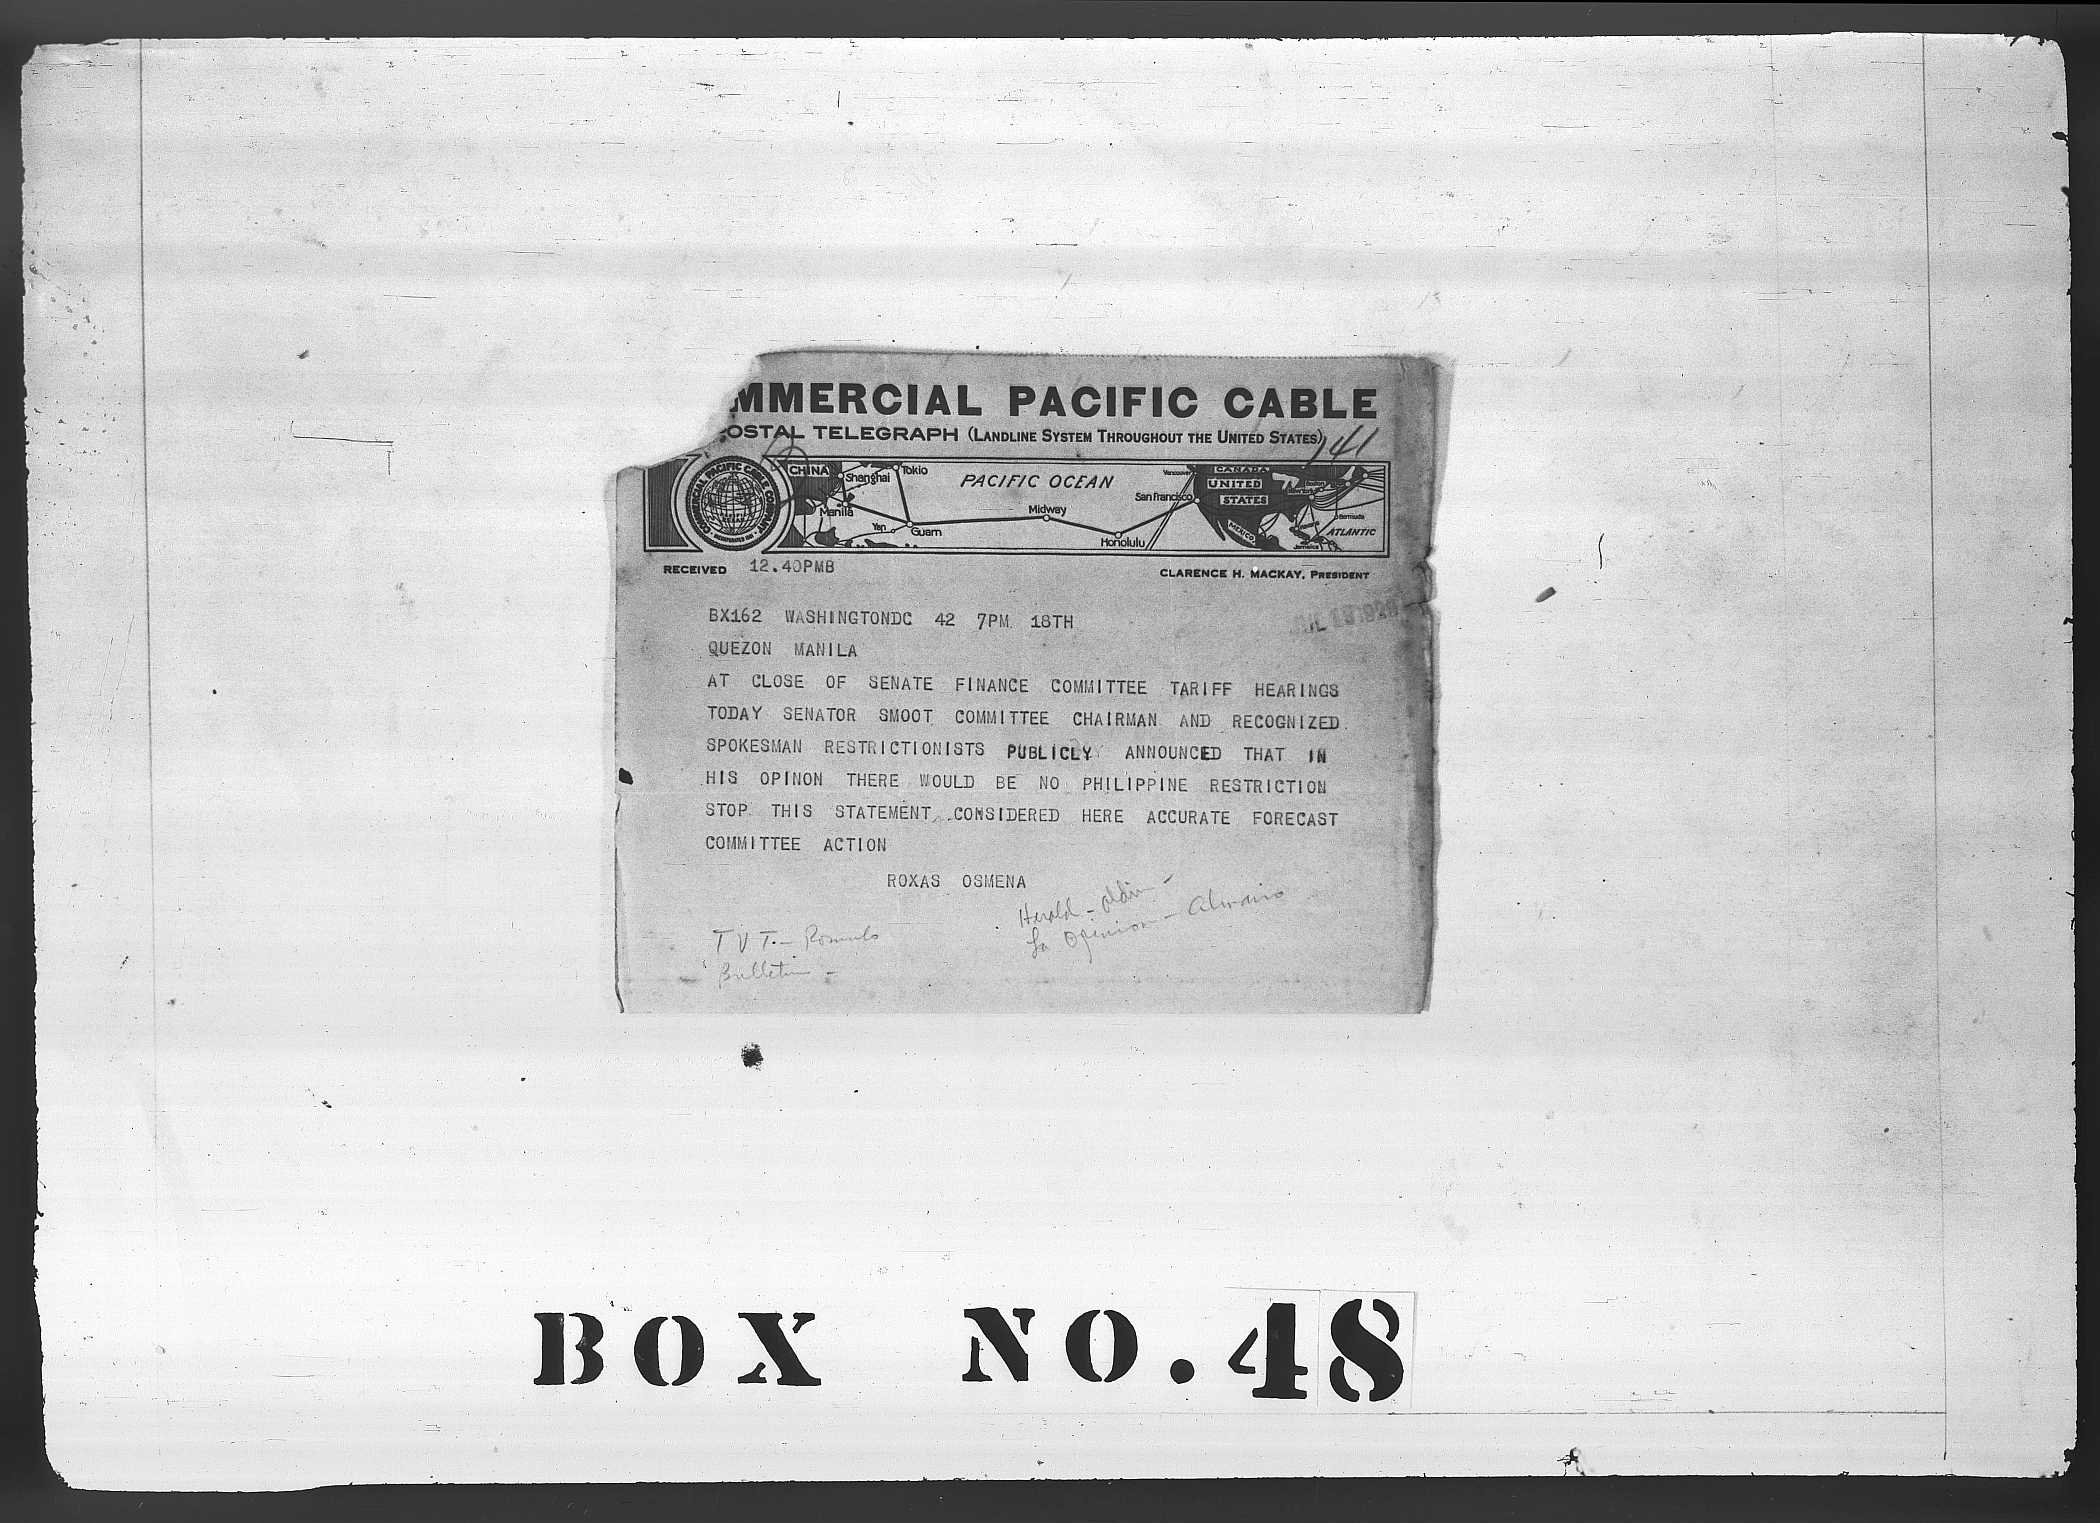 MMERCIAL PACIFIC CABLE
OSTAL TELEGRAPH (LANDLINE SYSTEM THROUGHOUT THE UNITED STATES)
141
COMMERCIAL PACIFIC CABLE COMPANY
CHINA
Shanghai
Tokio
Manila
Yap
Guam
PACIFIC OCEAN
Midway
Honolulu
San Francisco
Vancouver
CANADA
UNITED
STATES
MEXICO
Bermuda
ATLANTIC
Jamaica
RECEIVED 12.40PMB
CLARENCE H. MACKAY, PRESIDENT
BX162 WASHINGTONDC 42 7PM 18TH
QUEZON MANILA
AT CLOSE OF SENATE FINANCE COMMITTEE TARIFF HEARINGS
TODAY SENATOR SMOOT COMMITTEE CHAIRMAN AND RECOGNIZED
SPOKESMAN RESTRICTIONISTS PUBLICLY ANNOUNCED THAT IN
HIS OPINON THERE WOULD BE NO PHILIPPINE RESTRICTION
STOP THIS STATEMENT CONSIDERED HERE ACCURATE FORECAST
COMMITTEE ACTION
ROXAS OSMENA
Herald -
La Opinion -
T V T - Romulo
Bulletin -
BOX NO. 48